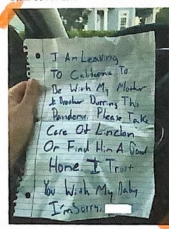 I Am Leaving
To California To
Be With My Mother
& Brother During This
Pandemic. Please Take
Care Of Lincoln
Or Find Him A Good
Home. I Trust
You With My Baby
I'm Sorry,